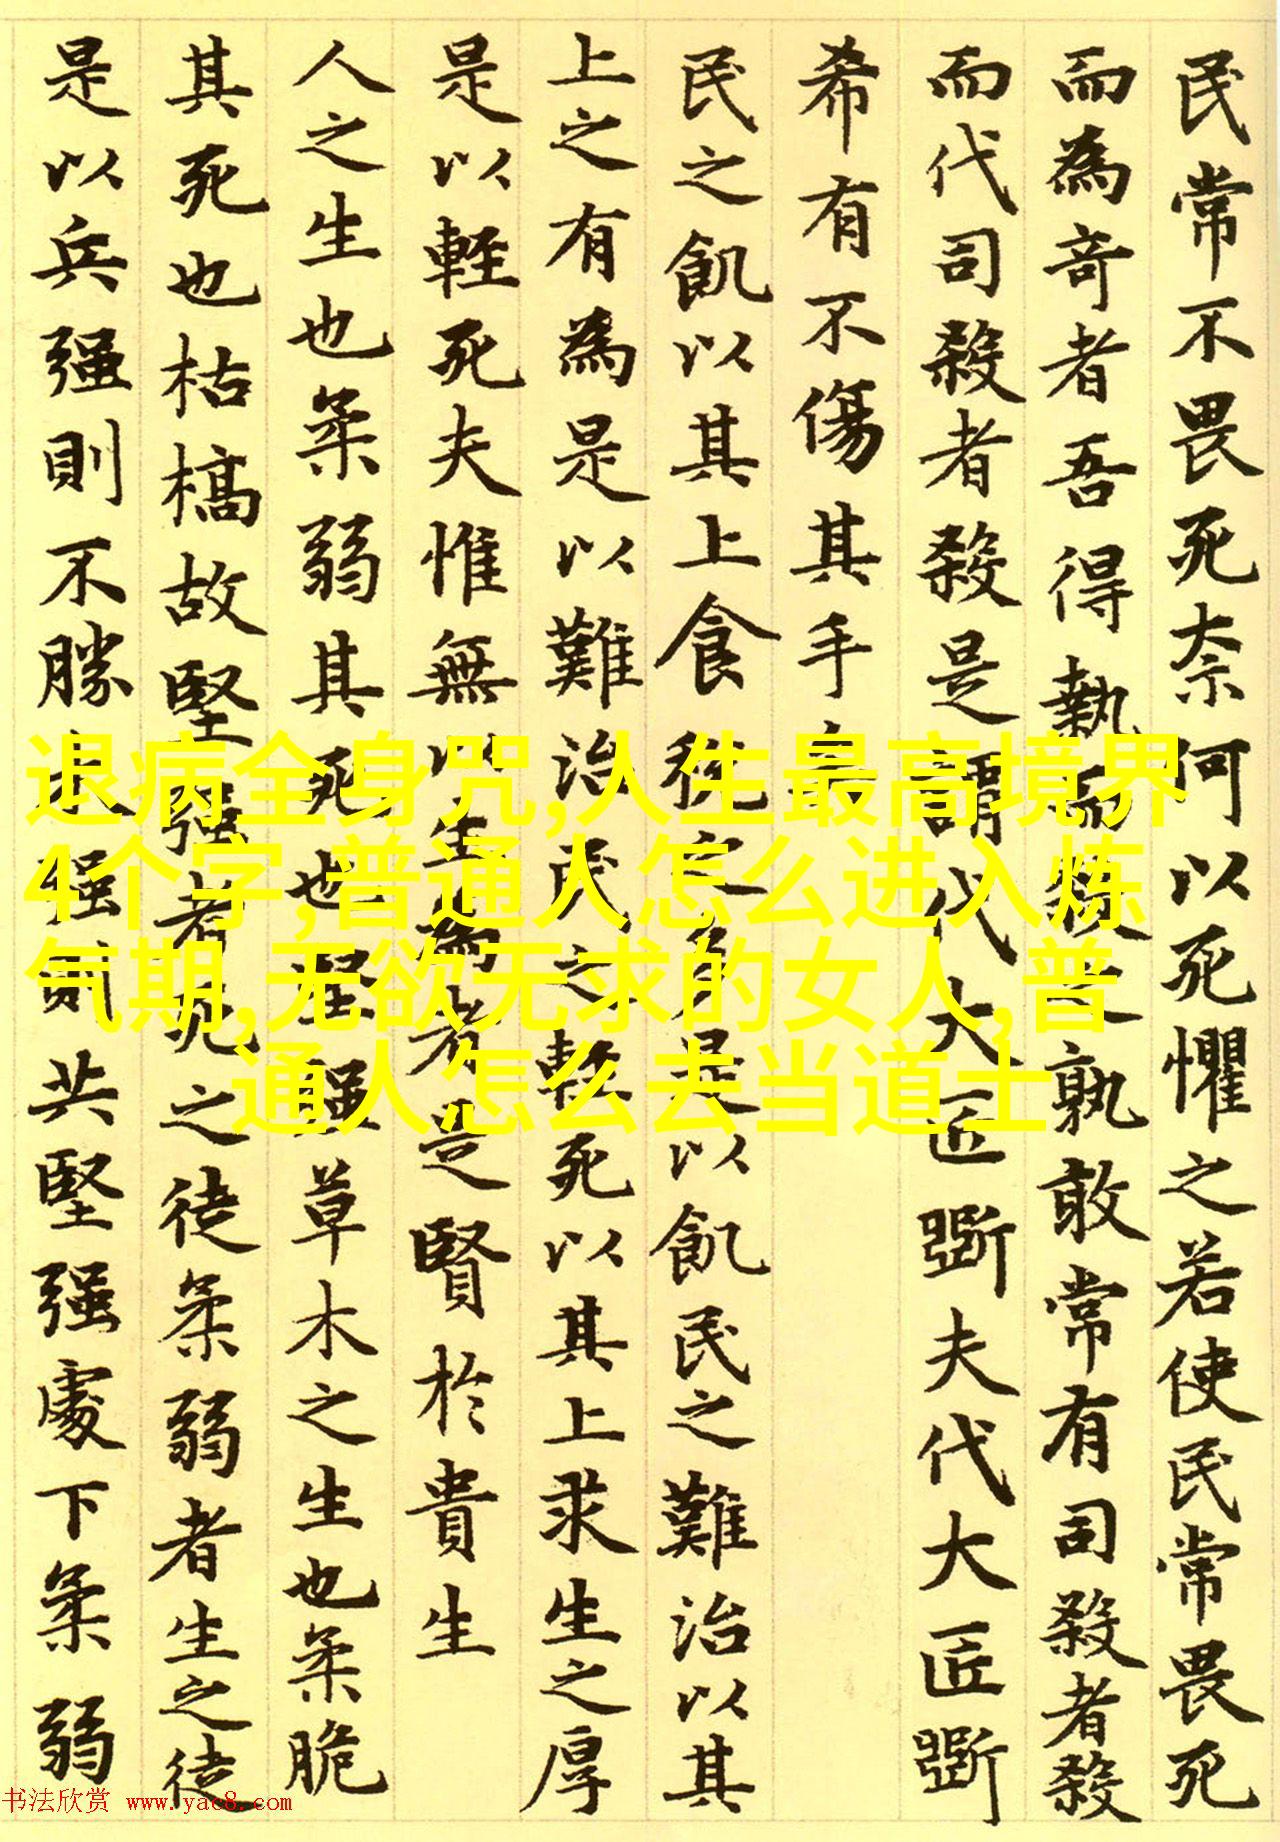 民常不畏死奈何以死懼之若使民常畏死
而為奇者吾得執而殺之孰敢常有司殺者殺
而代司殺者殺是謂代大匠斵夫代大匠斵
希有不傷其手矣
民之飢以其上食稅之多是以飢民之難治以其
上之有為是以難治民之輕死以其上求生之厚
是以輕死夫惟無以生為者是賢於貴生
人之生也柔弱其死也堅强草木之生也柔脆
其死也枯槁故堅强者死之徒柔弱者生之徒
是以兵强則不勝木强則共堅强處下柔弱
退病全身咒,人生最高境界
4个字,普通人怎么进入炼
气期,无欲无求的女人,普
通人怎么去当道士
书法欣赏 www.yac8.com